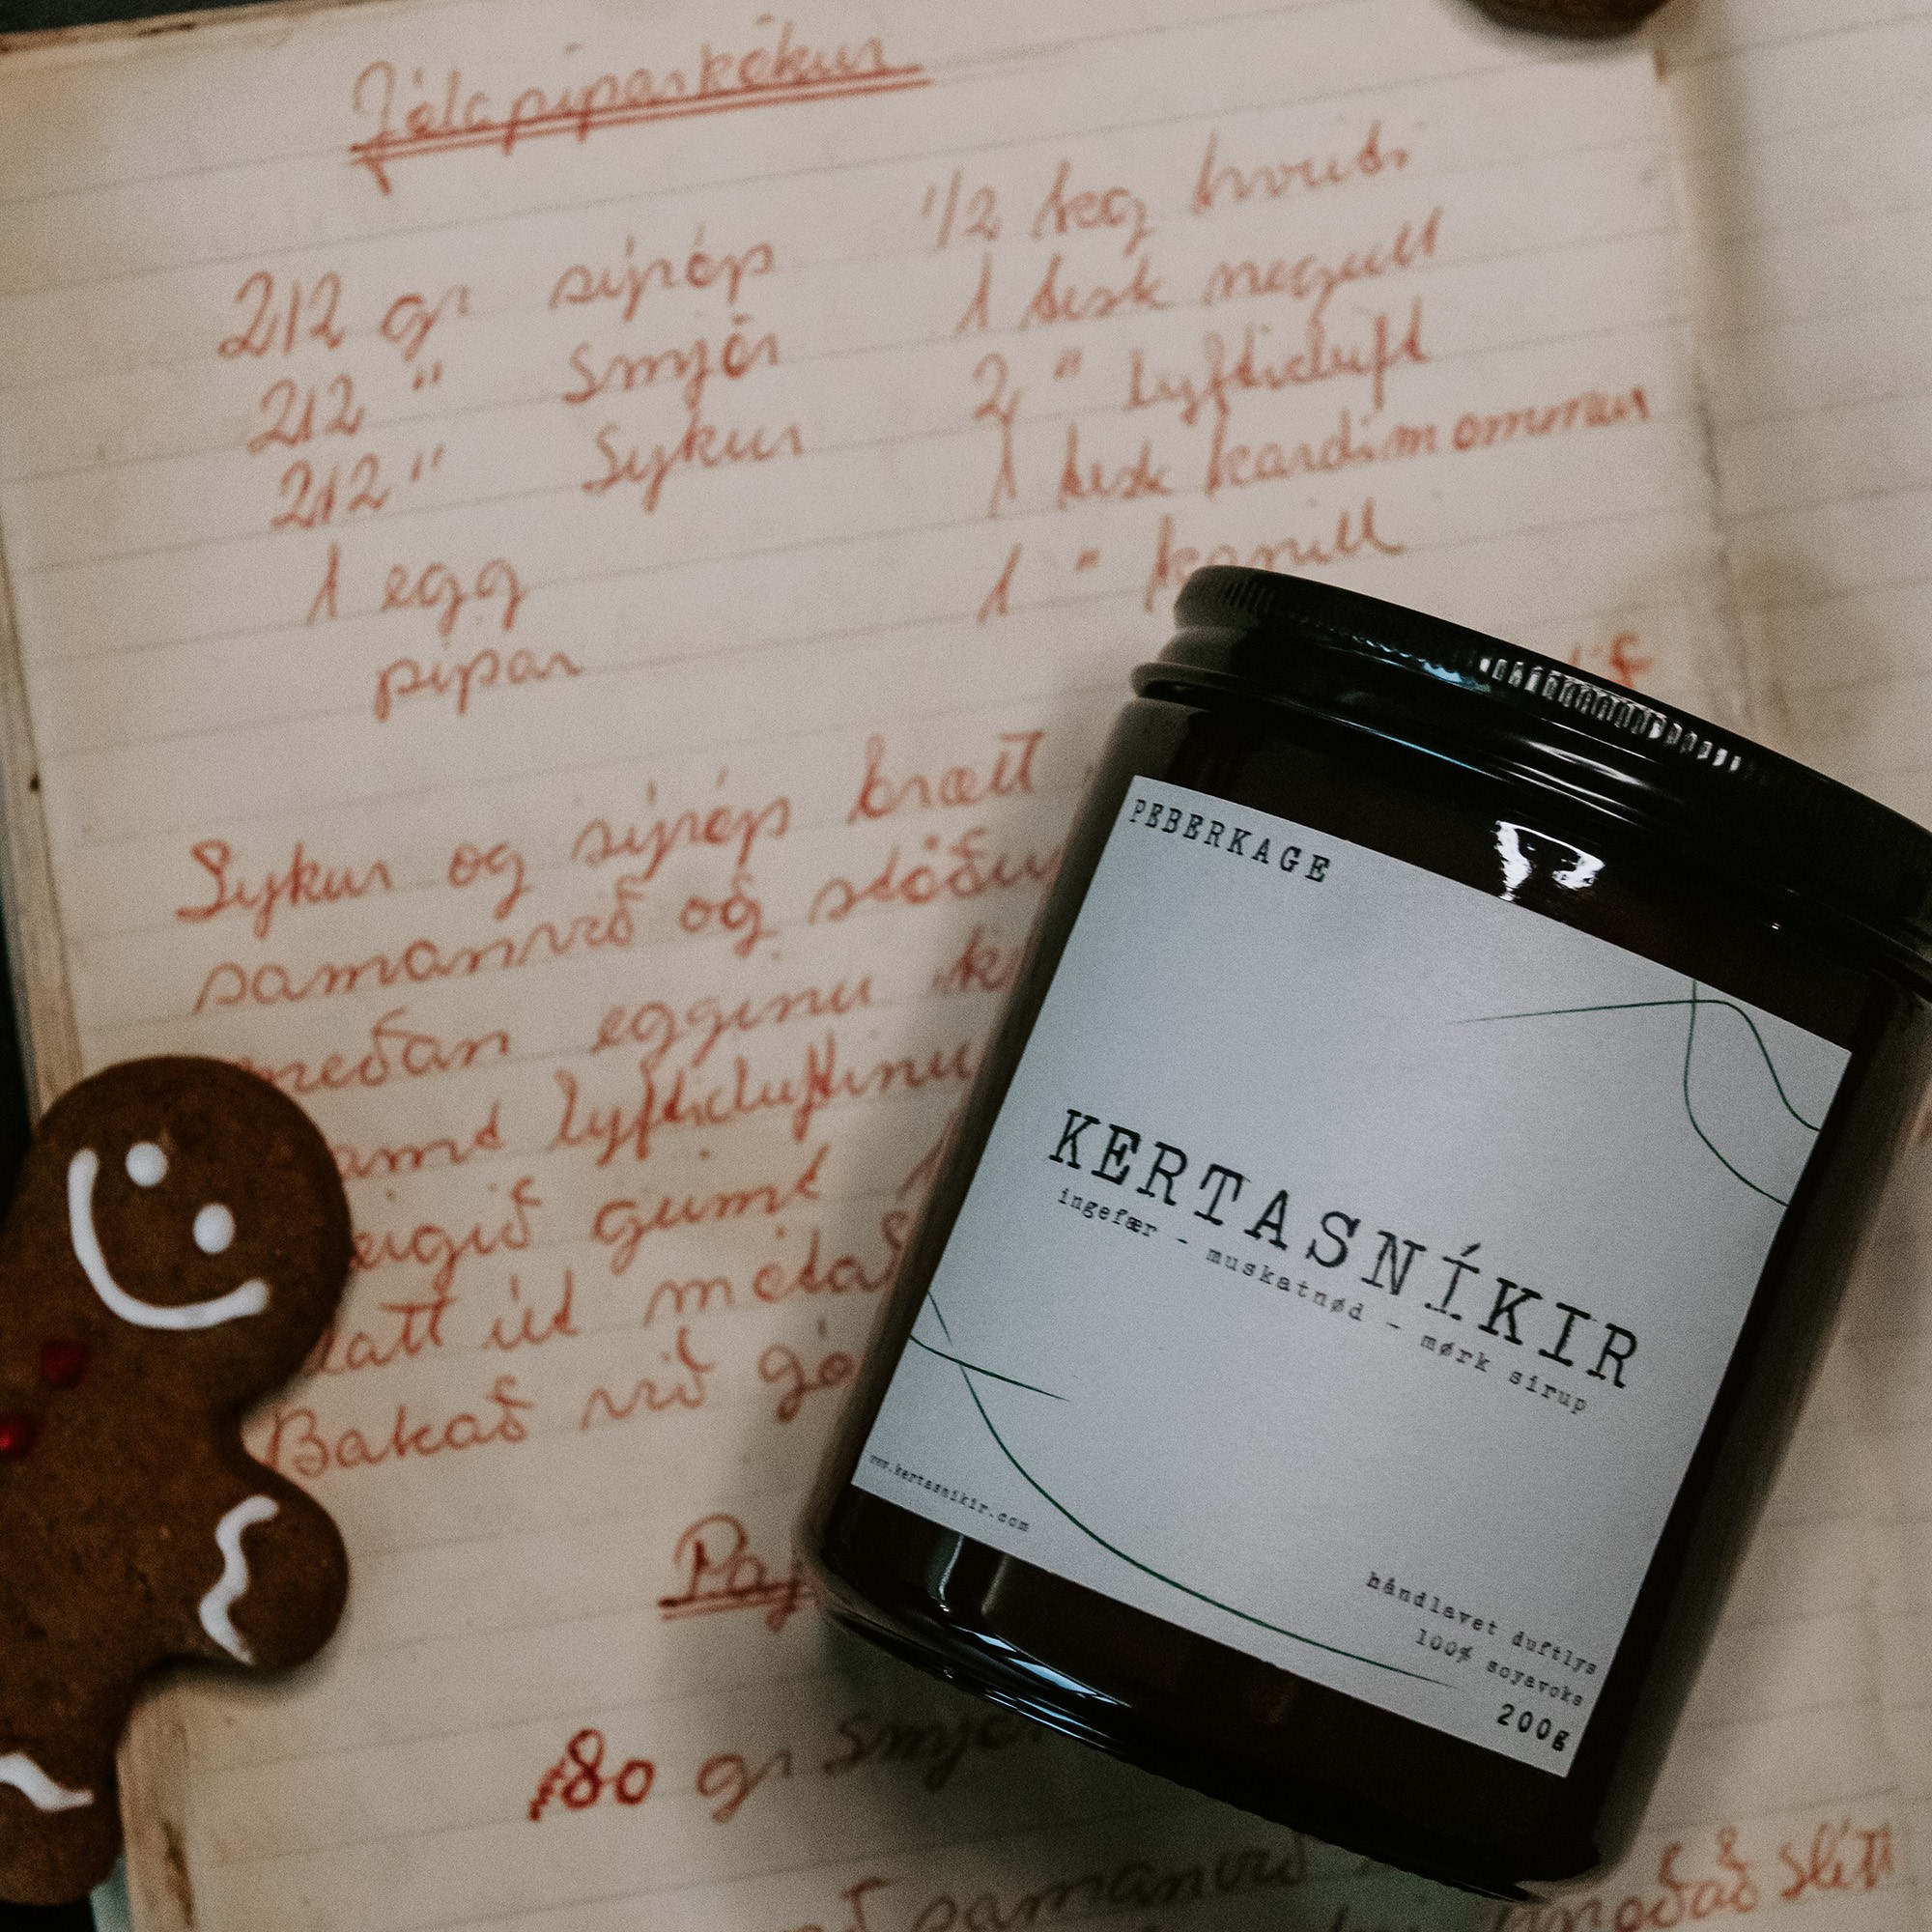 Jólapiparkökur
212 gr sýróp
212 " Smjör
212 " Sykur
1 egg
pipar
1/2 kg hveiti
1 tesk negull
2 " lyftiduft
1 tesk kardimommur
1 " kanill
Sykur og sýróp brætt
samanvið og
meðan egginu
lyftiduftinu
gumt
út
Bakað við
80 gr Smjör
samanvið
slétt
PEBERKAGE
KERTASNÍKIR
ingefær - muskatnød - mørk sirup
www.kertasnikir.com
håndlavet duftlys
100% soyavoks
200g